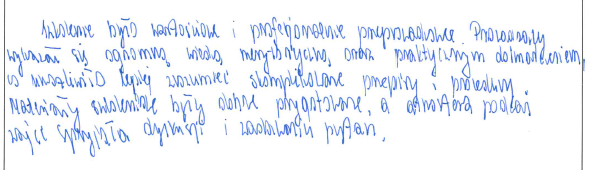 Szkolenie było wartościowe i profesjonalnie przeprowadzone. Prowadzący
wykazał się ogromną wiedzą merytoryczną oraz praktycznym doświadczeniem,
co umożliwiło lepiej zrozumieć skomplikowane przepisy i procedury.
Materiały szkoleniowe były dobrze przygotowane, a atmosfera podczas
zajęć sprzyjała dyskusji i zadawaniu pytań.